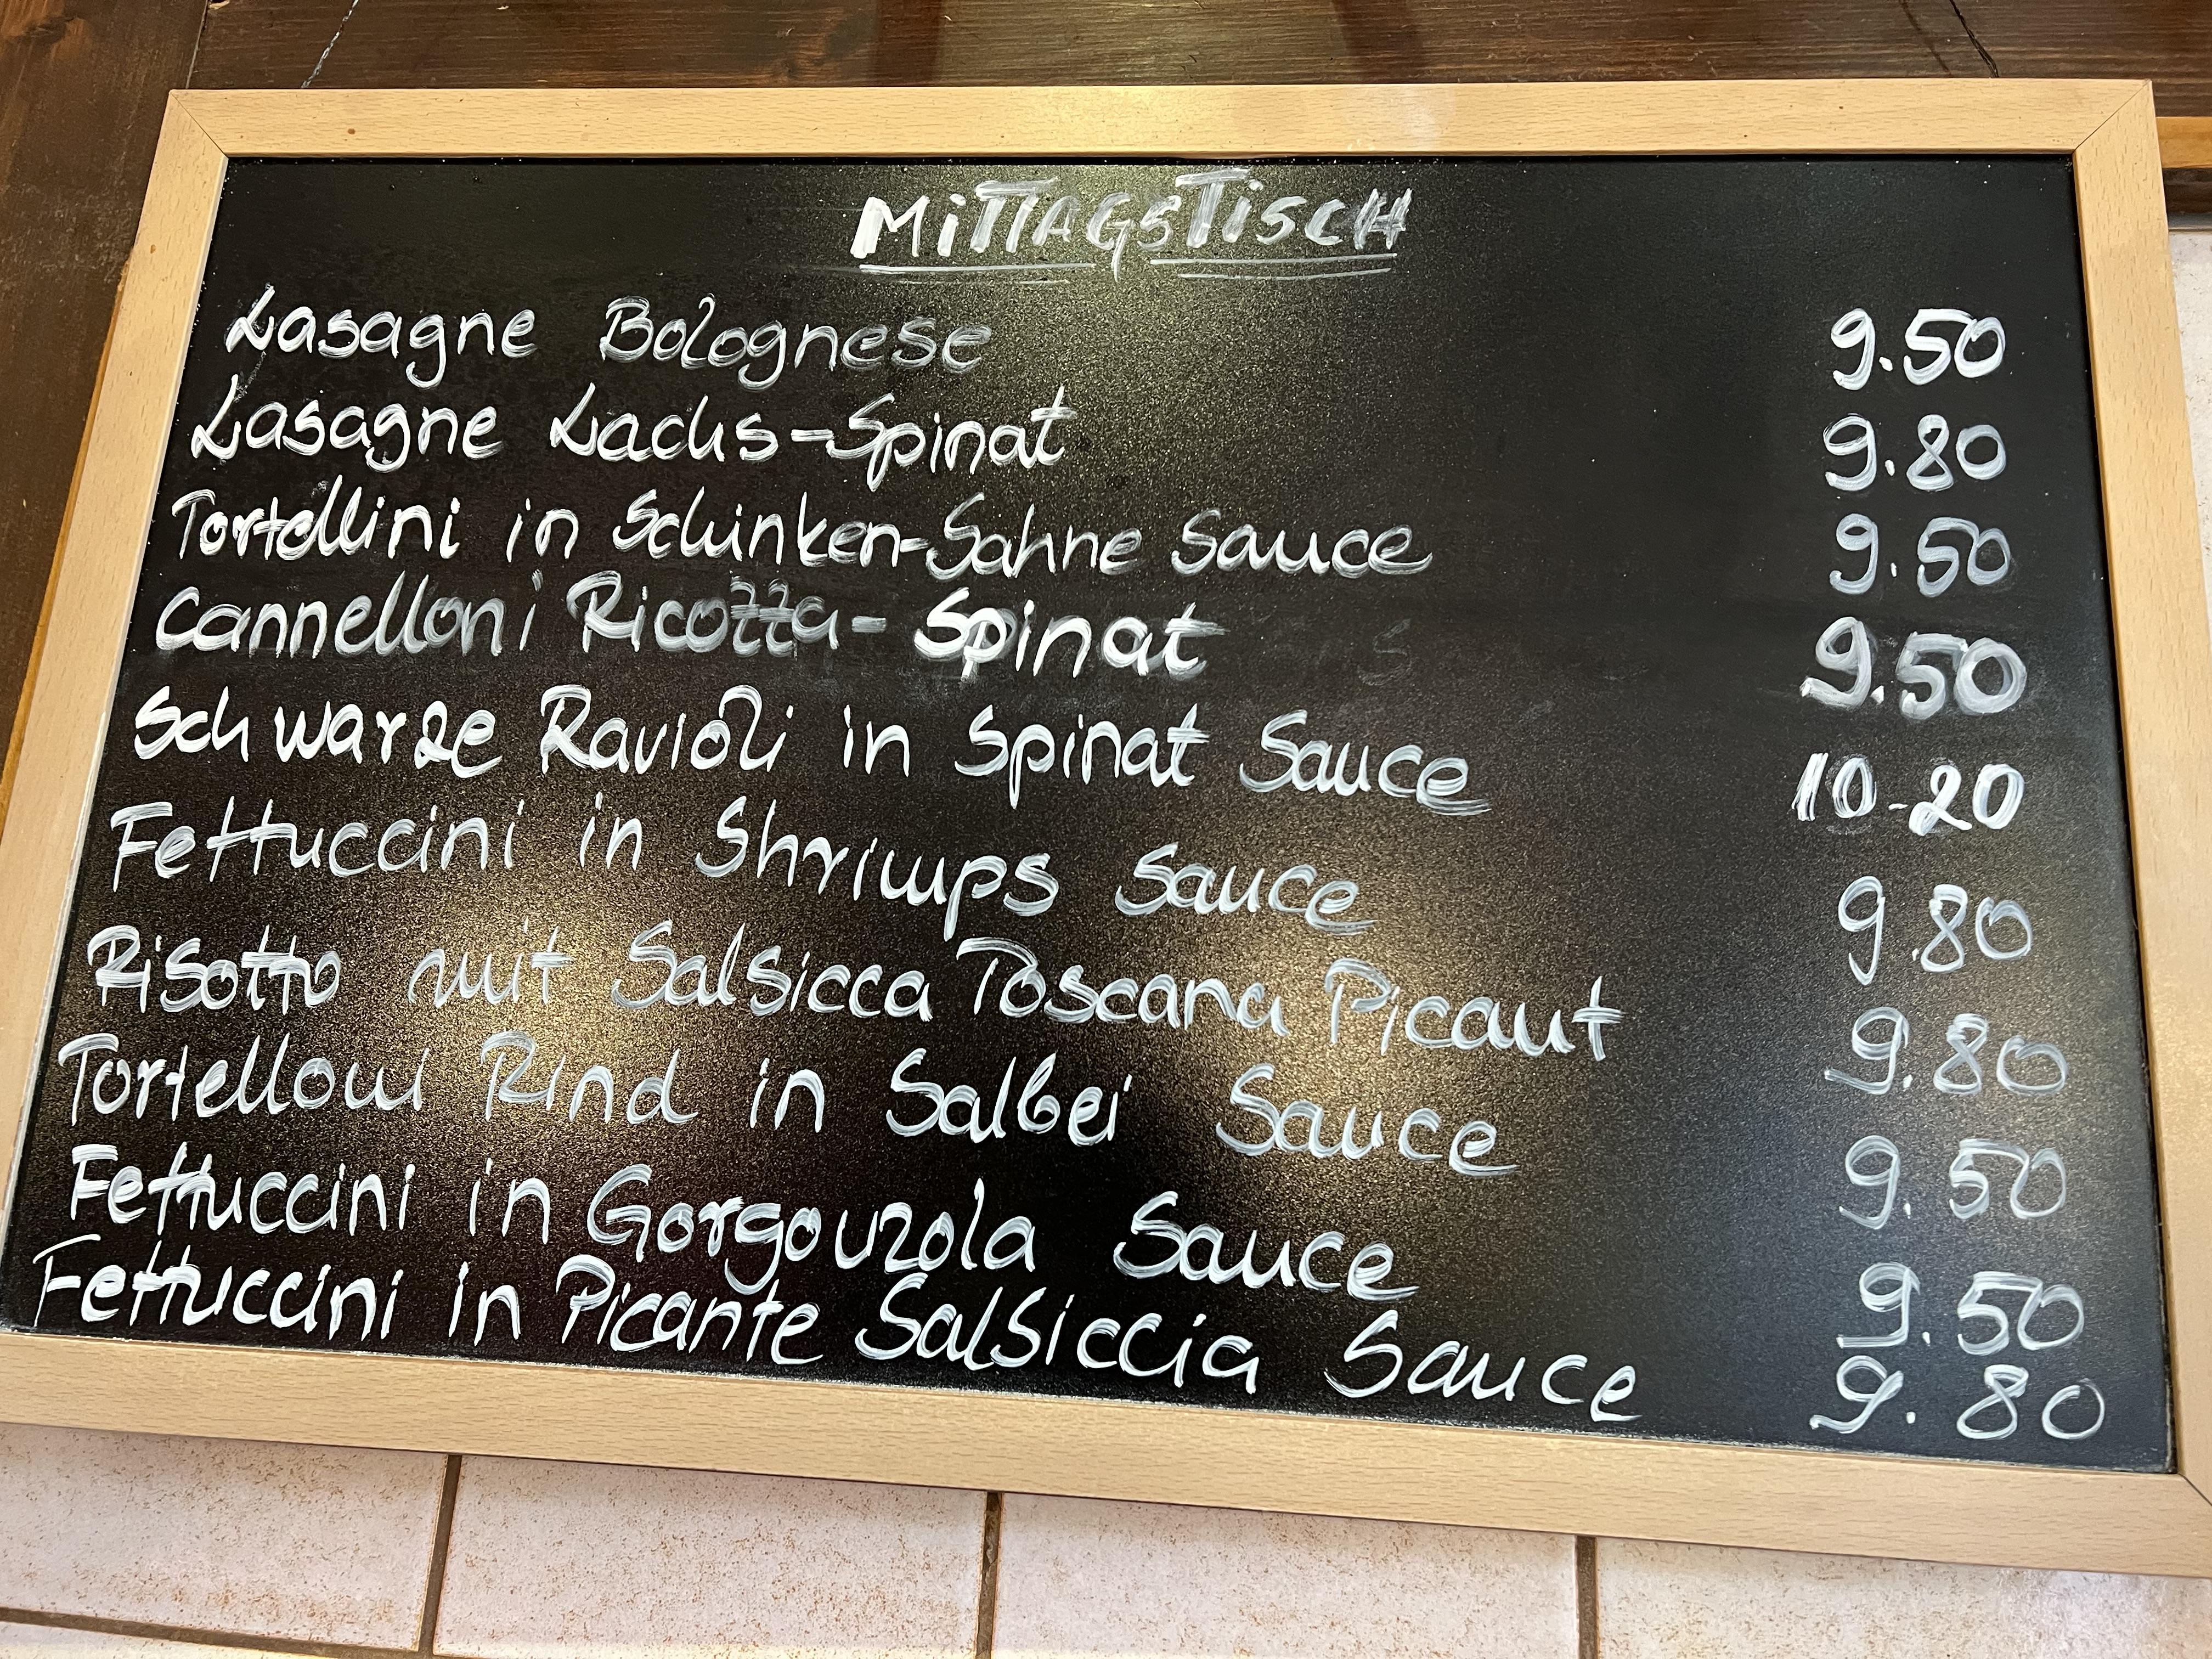 MiTTAGSTiSCH
Lasagne Bolognese 9.50
Lasagne Lachs-Spinat 9.80
Tortellini in Schinken-Sahne Sauce 9.50
Cannelloni Ricotta-Spinat 9.50
Schwarze Ravioli in Spinat Sauce 10-20
Fettuccini in Shrimps Sauce 9.80
Risotto mit Salsicca Toscana Picant 9.80
Tortelloni Rind in Salbei Sauce 9.50
Fettuccini in Gorgonzola Sauce 9.50
Fettuccini in Picante Salsiccia Sauce 9.80